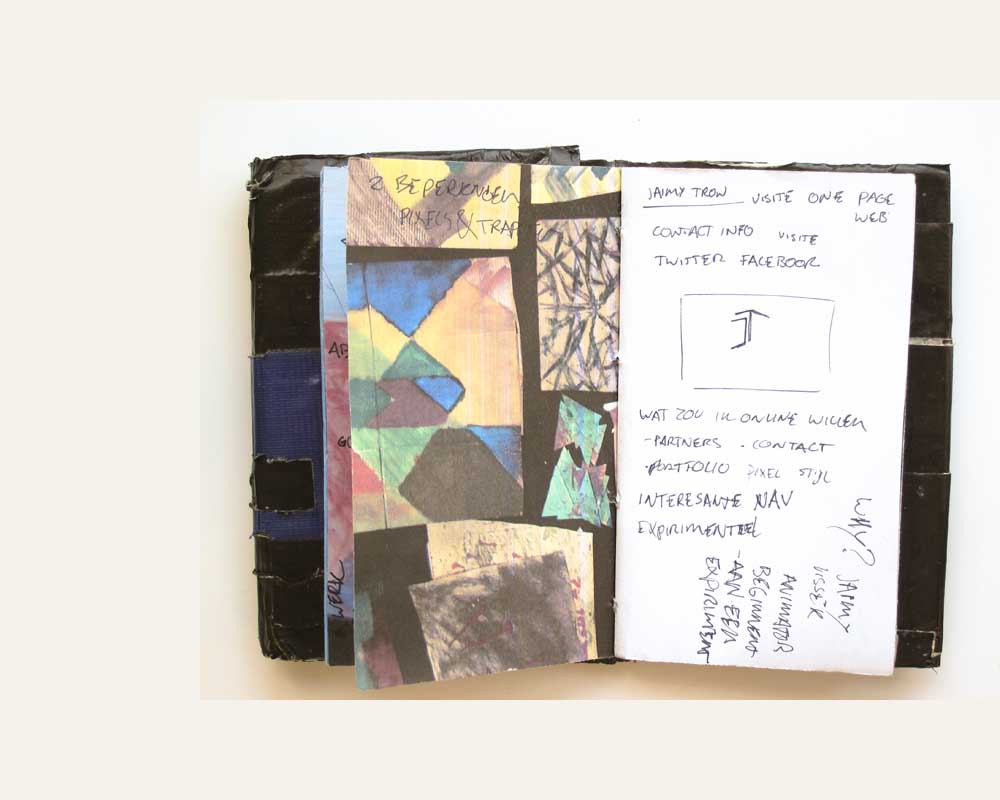 2 BEPERKINGEN
PIXELS &
AB
WERK
JAIMY TROW VISITE ONE PAGE
WEB
CONTACT INFO VISITE
TWITTER FACEBOOK
JT
WAT ZOU IK ONLINE WILLEN
- PARTNERS . CONTACT
. PORTFOLIO PIXEL STIJL
INTERESANTE NAV
EXPIRIMENTEEL
WHY? JAIMY
VISSER
ANIMATOR
BEGINNEND
- AAN EEN
EXPIRIMENT